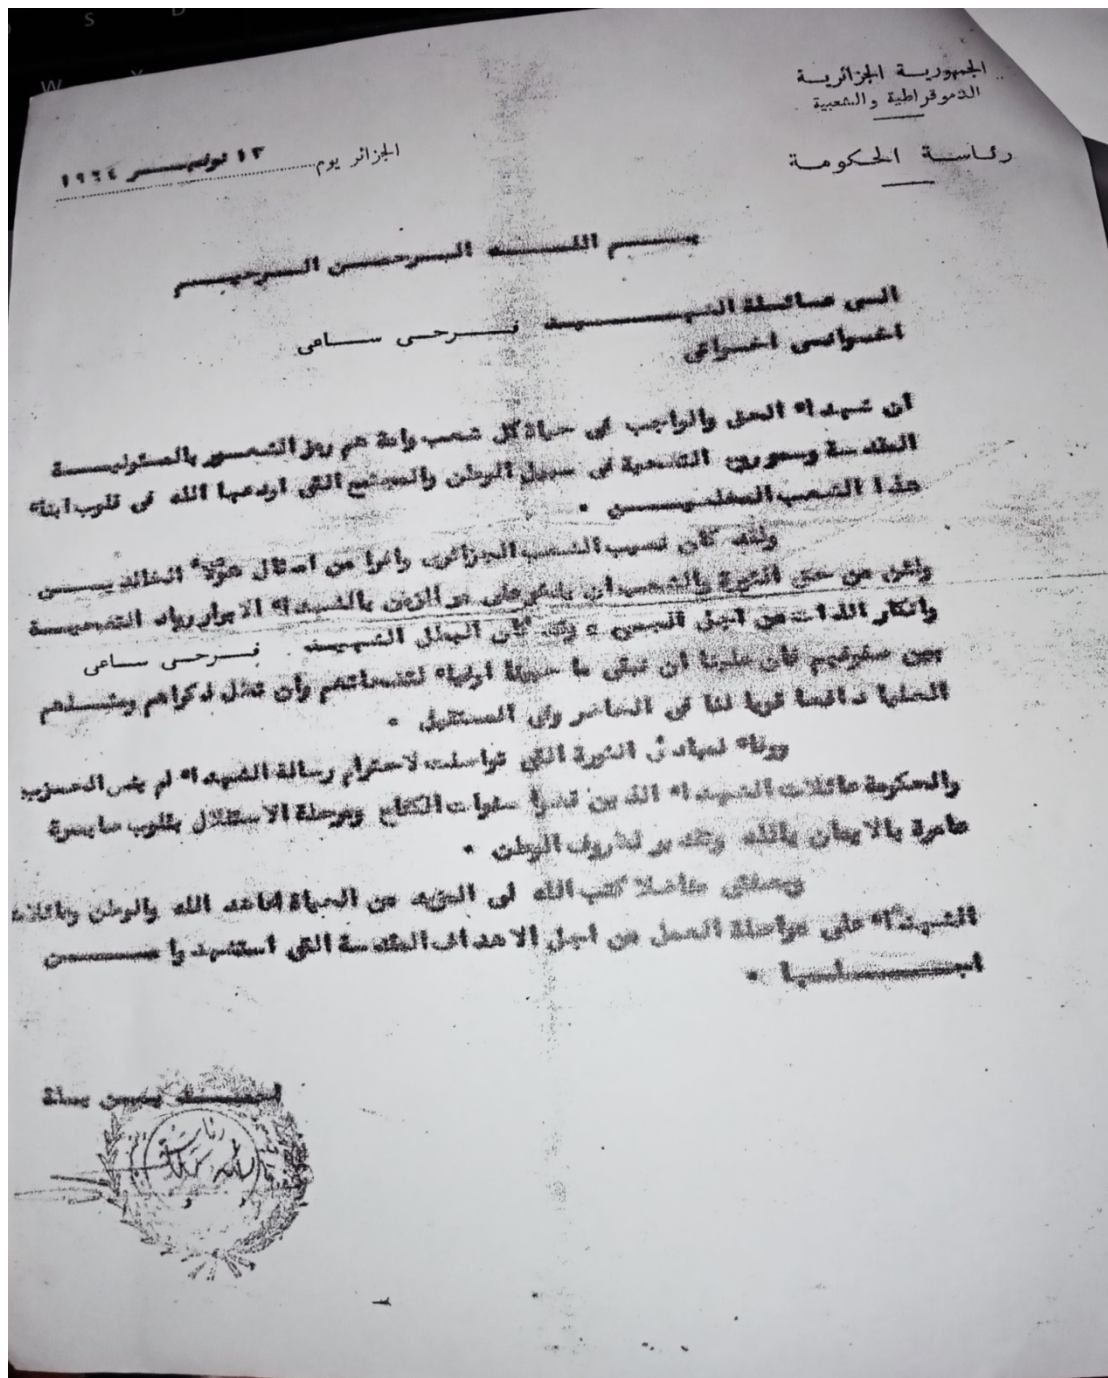 الجمهورية الجزائرية
الديموقراطية والشعبية
رئاسة الحكومة
الجزائر يوم ١٣ نوفمبر ١٩٦٤
بسم الله الرحمن الرحيم
الى عائلة الشهيد فرحي ساعي
اخواني اخواتي
ان شهداء الحق والواجب في حياة كل شعب وامة هم رمز الشعور بالمسئولية
المقدسة وسمو روح التضحية في سبيل الوطن والمجتمع التي اودعها الله في قلوب ابناء
هذا الشعب المخلصين .
ولقد كان نصيب الشعب الجزائري وافرا من امثال هؤلاء الخالدين
ولئن من حق الثورة والشعب ان يفخر على مر الزمن بالشهداء الابرار رواد التضحية
وانكار الذات من اجل الجميع ، وقد كان البطل الشهيد فرحي ساعي
بين صفوفهم فان علينا ان نبقى ما حيينا اوفياء لتضحياتهم وأن تظل ذكراهم ومثلهم
العليا دافعا قويا لنا في الحاضر وفي المستقبل .
ووفاء لمبادئ الثورة التي تواصلت لاحترام رسالة الشهداء لم ينس الحزب
والحكومة عائلات الشهداء الذين قضوا سنوات الكفاح ومرحلة الاستقلال بقلوب صابرة
عامرة بالايمان بالله وتقدير لظروف الوطن .
وبصفتي مناضلا كتب الله لي المزيد من الحياة اعاهد الله والوطن وعائلات
الشهداء على مواصلة العمل من اجل الاهداف المقدسة التي استشهدوا من
اجلها .
احمد بن بلة
رئاسة